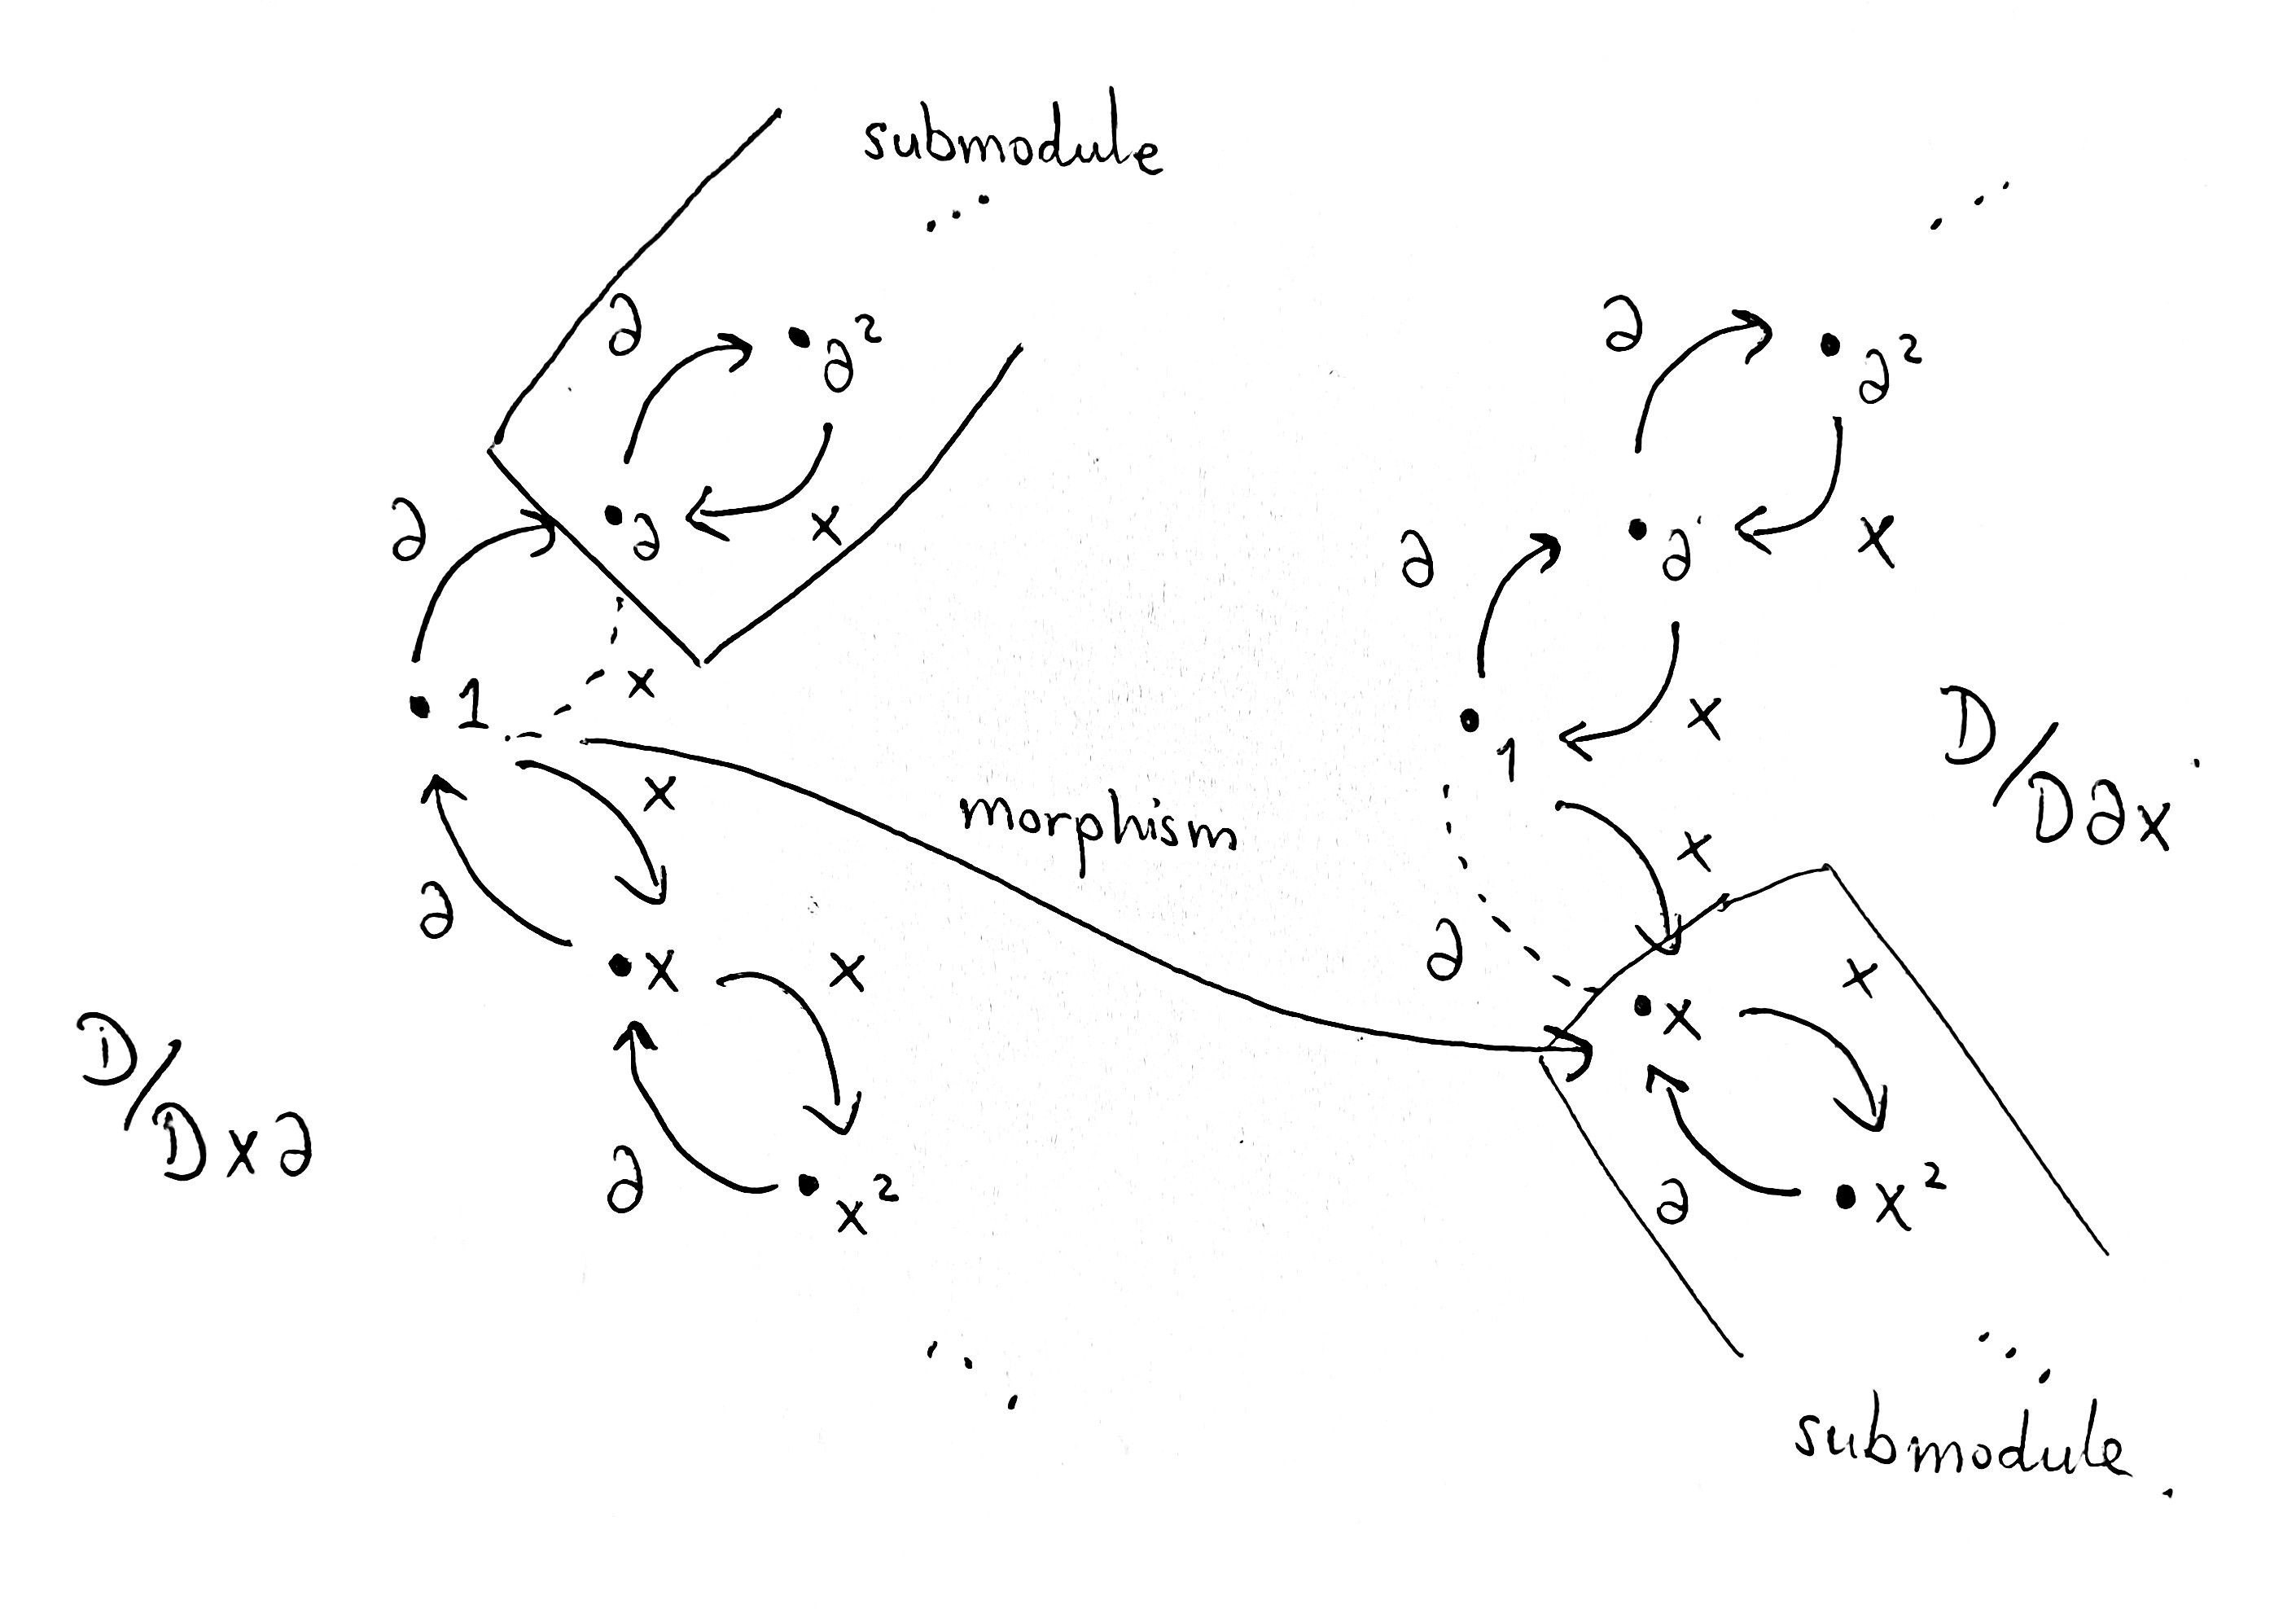 submodule
∂
∂²
∂
∂²
∂
∂
x
∂
∂
x
1
x
1
x
D/D∂x
x
morphism
x
∂
x
x
∂
x
x
D/Dx∂
∂
x²
∂
x²
submodule